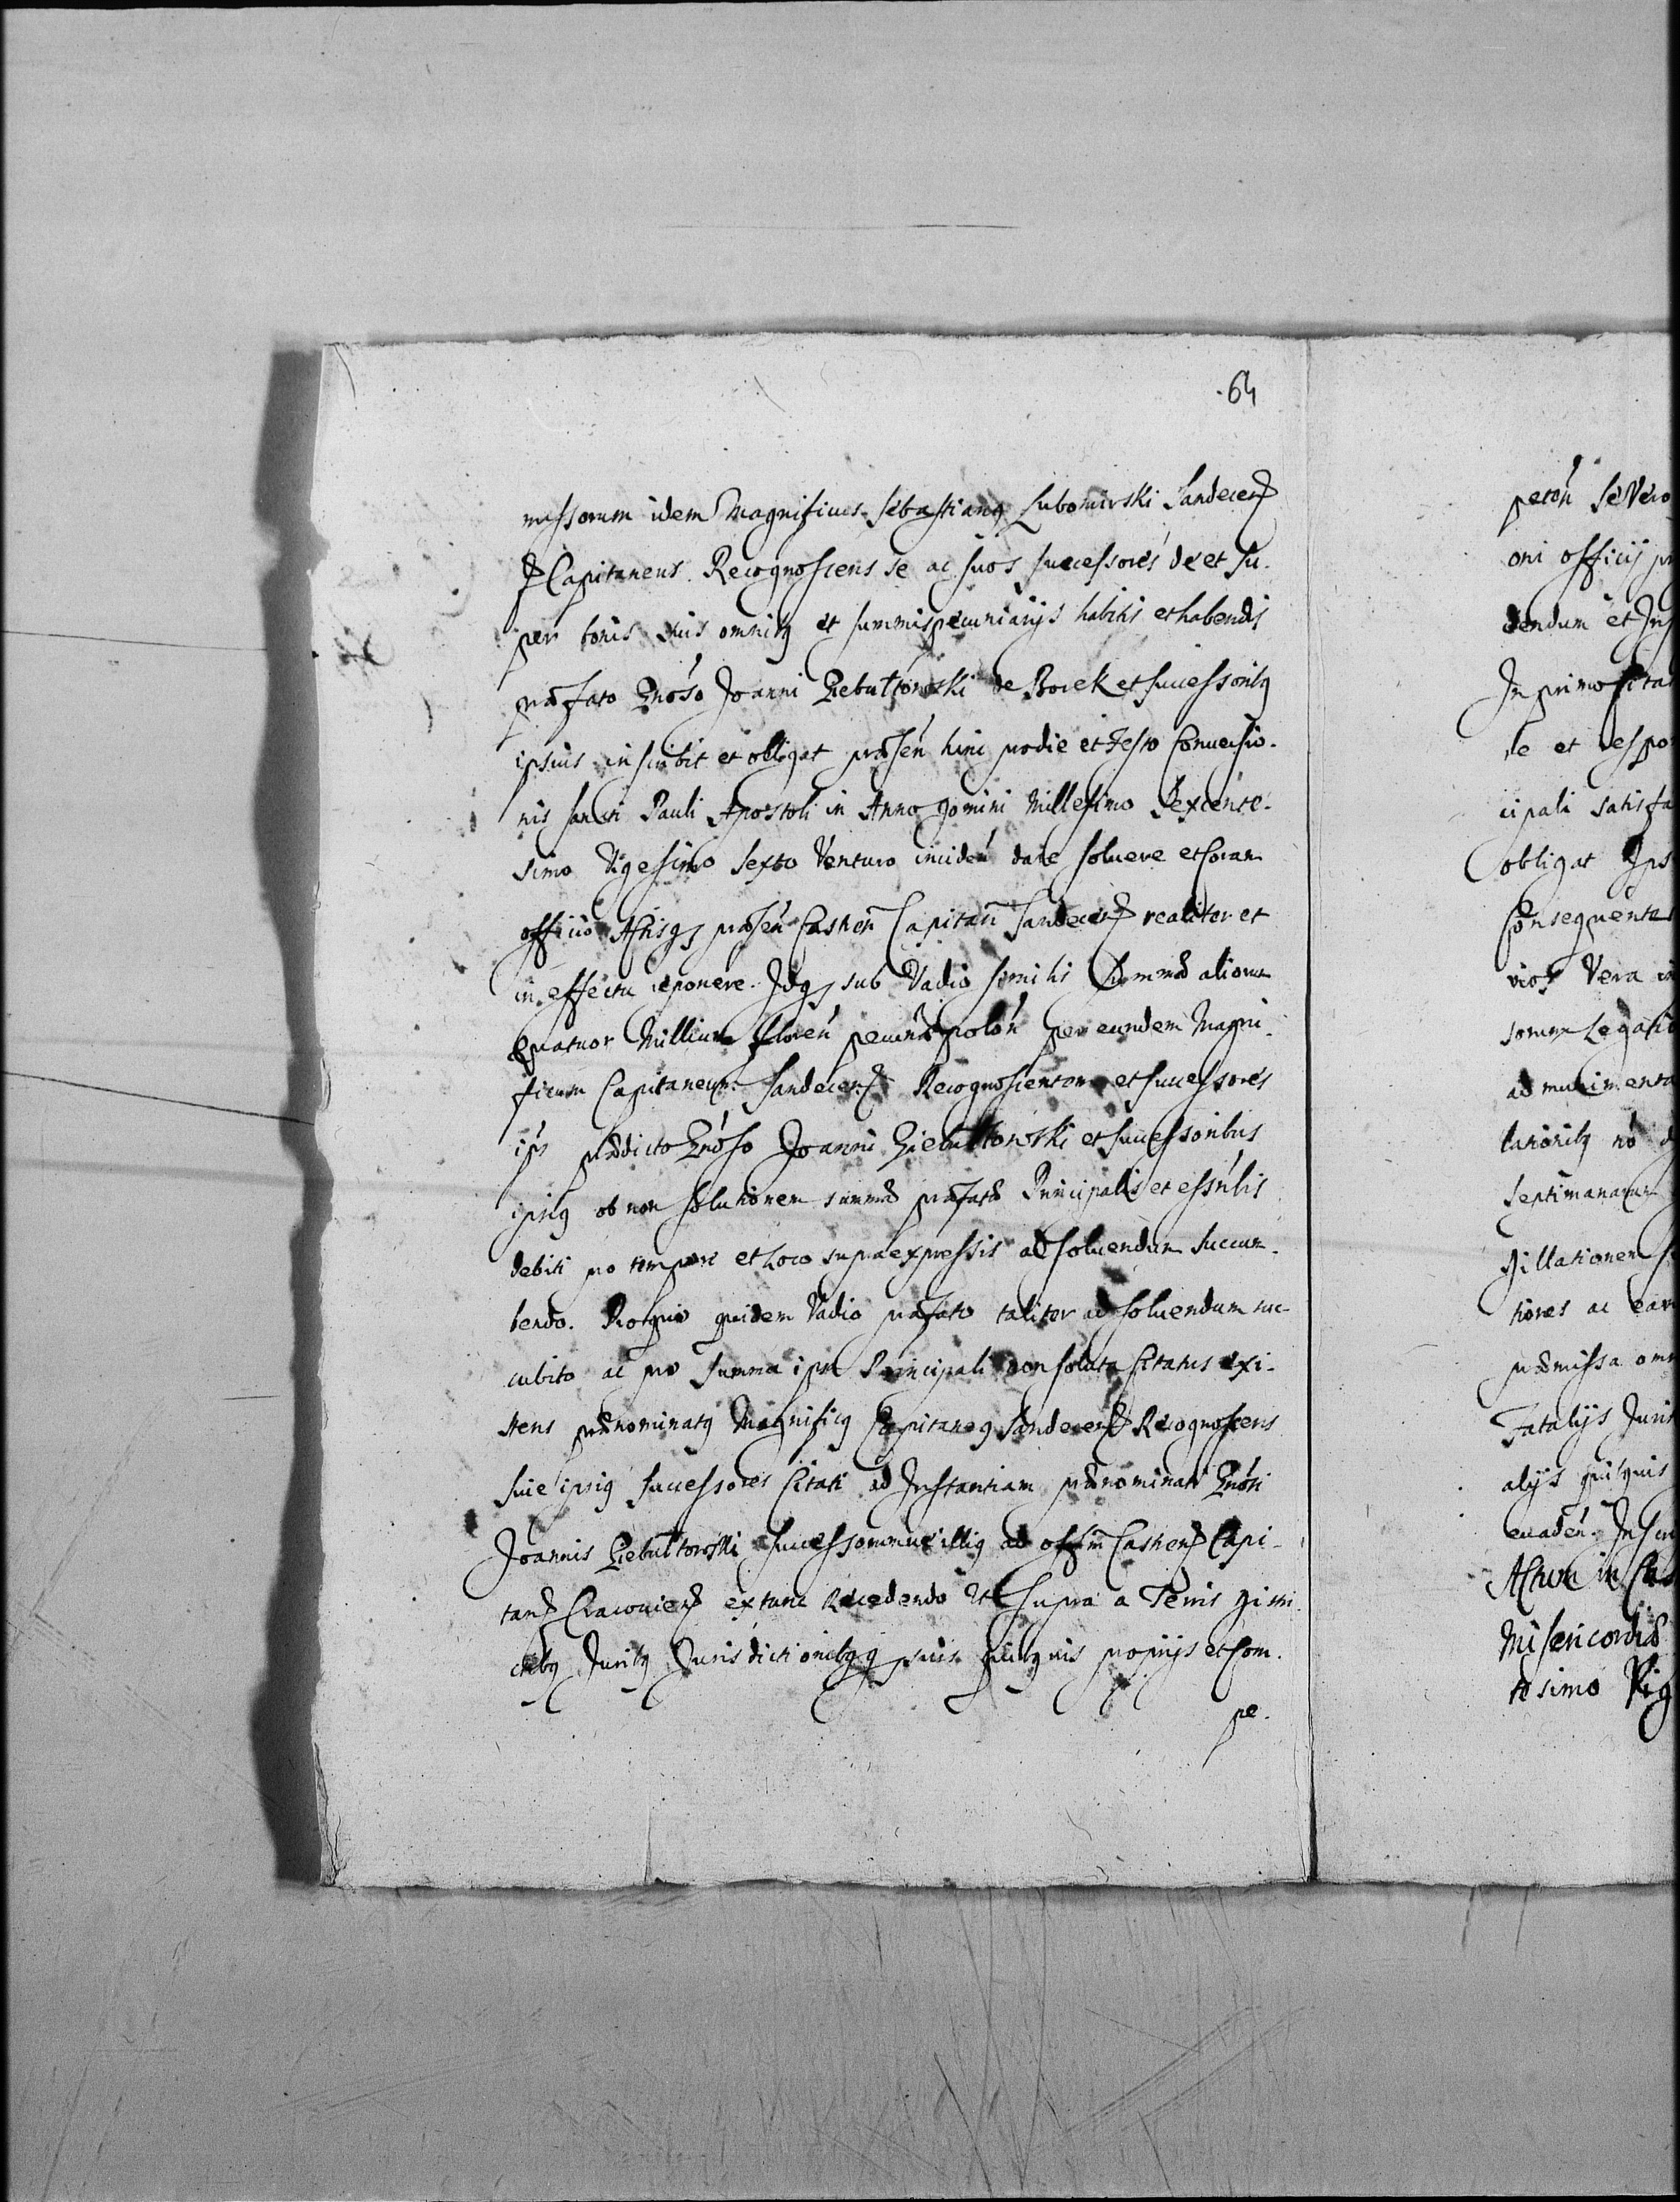 64
missorum idem Magnificus Sebastiang Lubomirski Sandecen
Capitaneus Recognoscens se ac suos successores de et su-
per bonis suis omnibg et summis pecuniarijs habitis et habendis
præfato Gnóso Joanni Giebułtowski de Borek et successoribg
ipsius inscribit et obligat præsen hinc pro die et Festo Conversio-
nis sancti Pauli Apostoli in Anno Domini Millesimo Sexcente-
simo Vigesimo Sexto Venturo inciden dare soluere et coram
officio Actisqz præsen Castren Capitan Sandecen realiter et
in effectu reponere. Idqz sub Vadio simili summæ aliorum
Quatuor Millium floren pecuniæ polon per eundem Magni-
ficum Capitaneum Sandecen Recognoscentem et successores
ips prædicto Gnoso Joanni Giebułtowski et successoribus
ipsig ob non solutionem summæ præfatæ Principalis et essnlis
debiti pro tempore et Loco supra expressis ad soluendum succum-
bendo. Pro quo quidem Vadio præfato taliter ad soluendum suc-
cubito ac pro summa ipsa Principali non soluta Citatus exi-
stens prænominatg Magnificg Capitaneg Sandecen Recognoscens
siue ipsig successores Citati ad Instantiam prænominati Gnósi
Joannis Giebułtowski successorumue illig ad offim Castren Capi-
tan Cracouien extunc Recedendo Ut supra a Terris Districtibg Juribg Jurisdictionibgqz suis quibguis proprijs et Com-
pe.
peten se Vero
oni officij
dendum et
In primo
le et respo
cipali satisfa
obligat Ips
Consequente
Vera
Legati
ad munimenta
septimanarum
gillationem
tiones ac
præmissa om
Fatalijs Juris
alijs quibguis
euaden.
Actum in
Misericordiæ
tesimo Vig